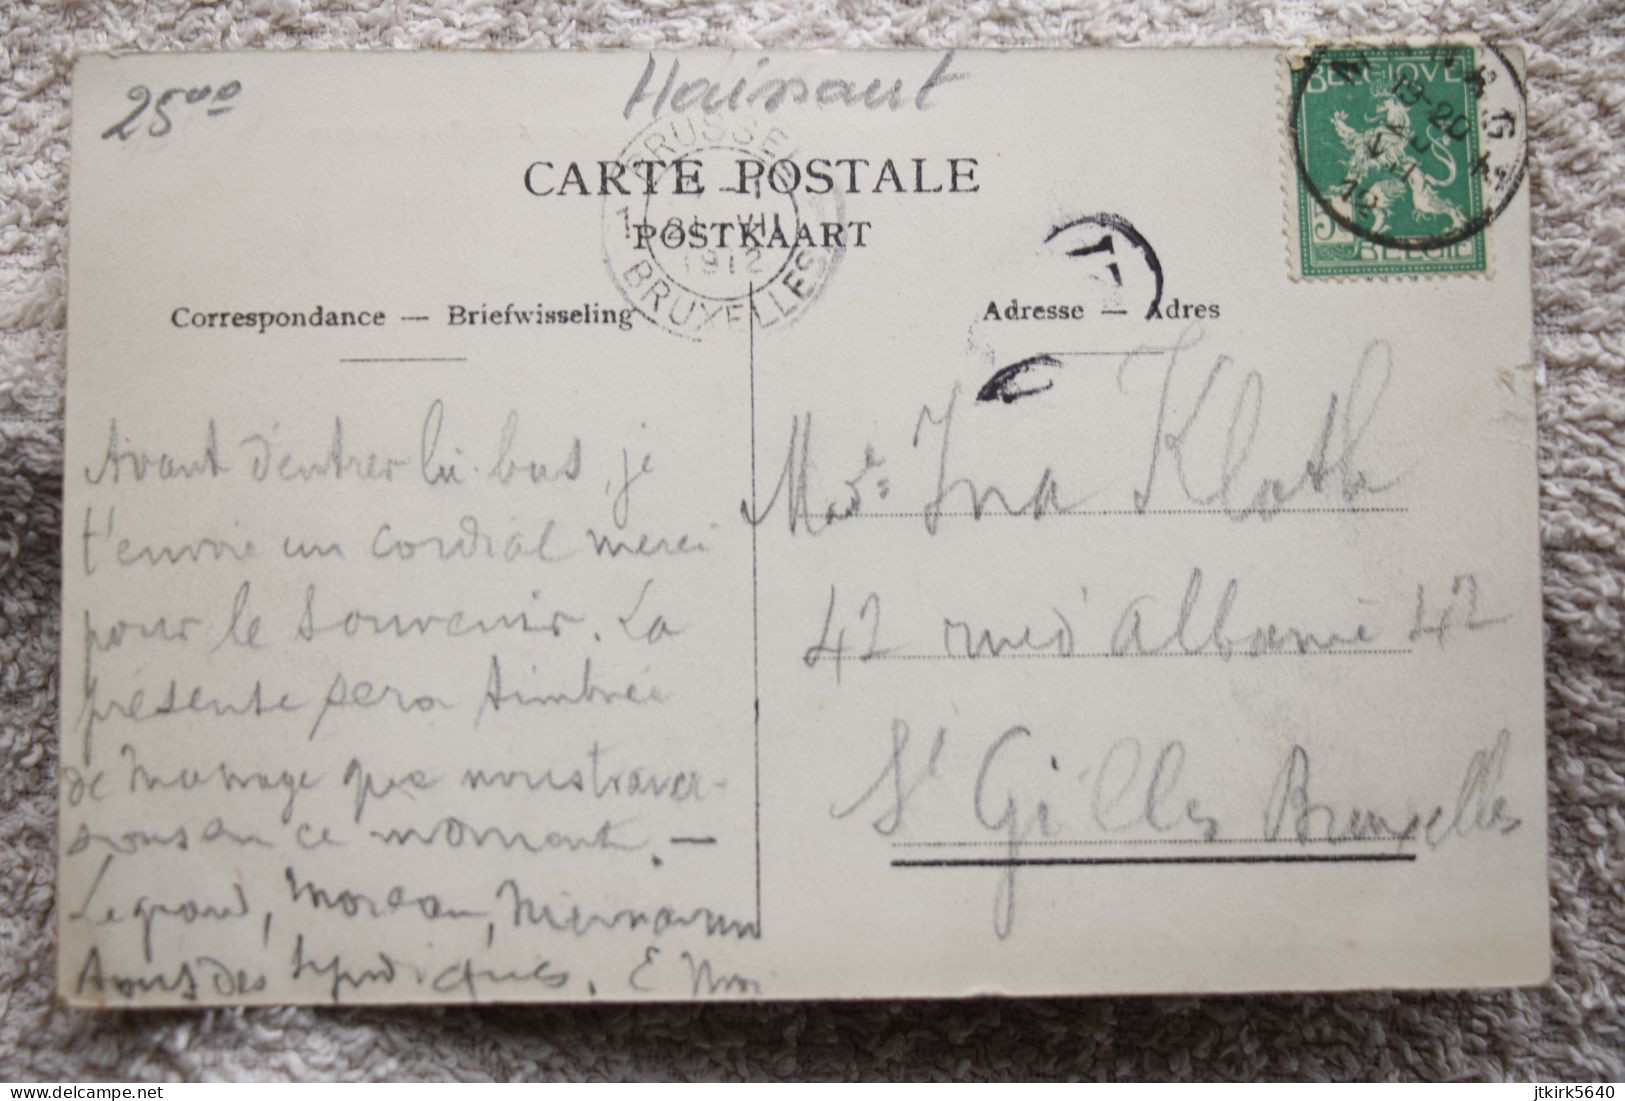 25,00
Hainaut
BRUSSEL
1 21 VII
1912
BRUXELLES
CARTE POSTALE
POSTKAART
BELGIQUE
5
BELGIË
19-20
12
Correspondance — Briefwisseling
Adresse — Adres
Avant d'entrer là-bas, je
t'envoie un cordial merci
pour le souvenir. La
présente sera timbrée
de que nous traver-
sons en ce moment. —
Legrand, Moreau,
des Syndiqués. E
Made Ina Kloth
42 rue d'Albanie 42
St Gilles Bruxelles
delcampe.net
jtkirk5640